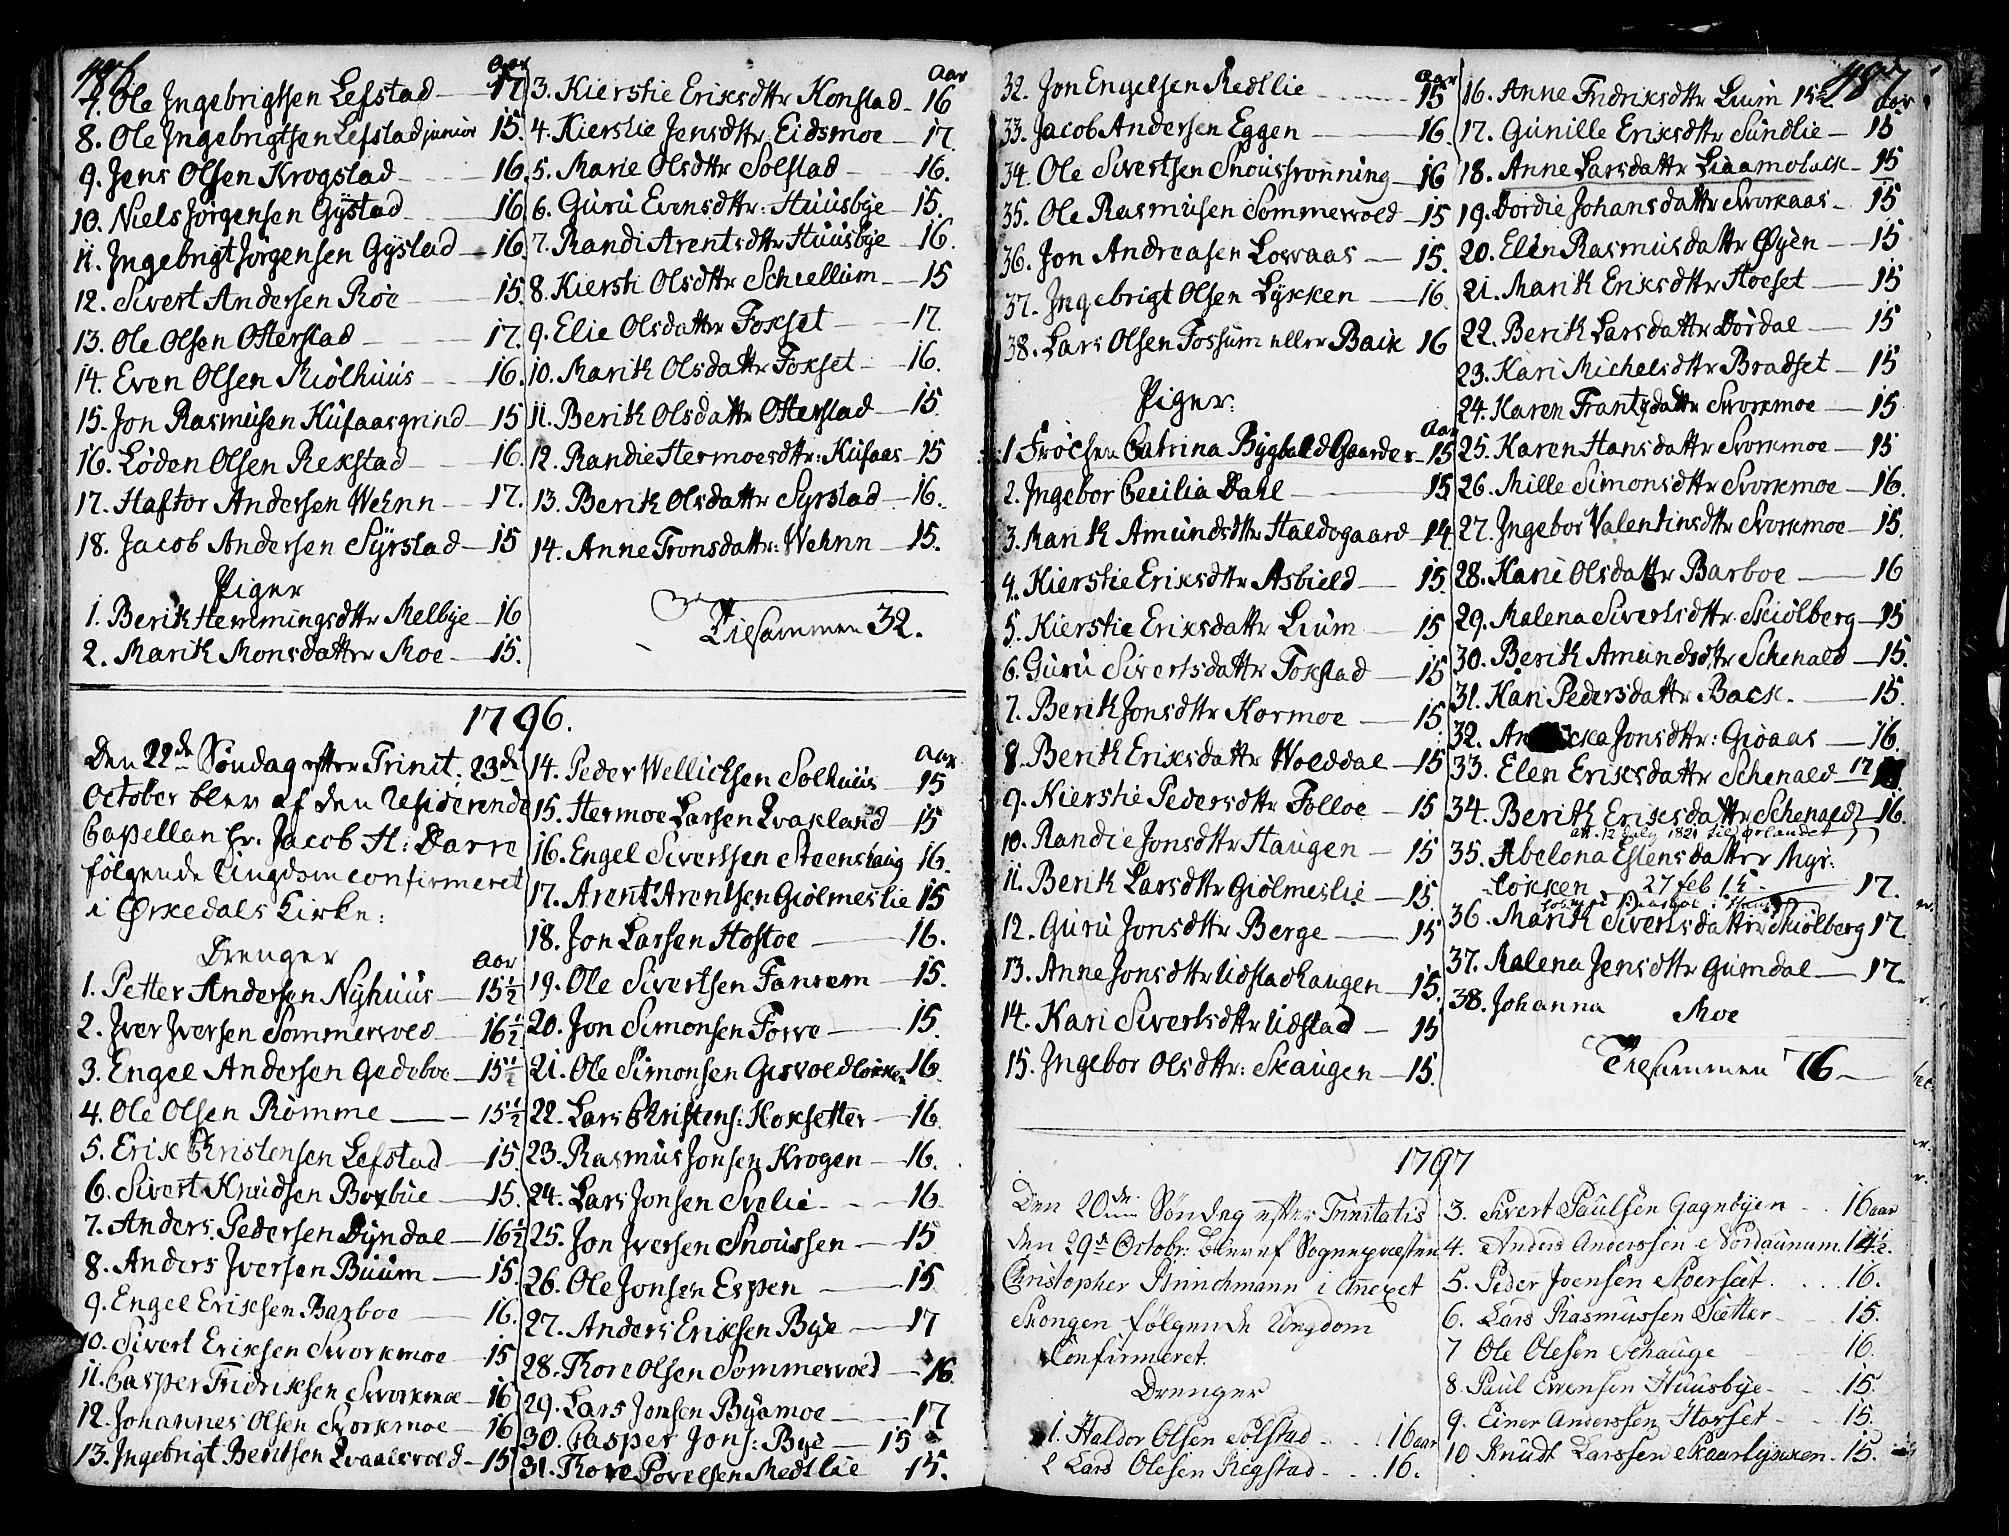 486
Aar
7. Ole Ingebrigtsen Lefstad 17
8. Ole Ingebrigtsen Lefstad junior 15.
9. Jens Olsen Krogstad 16.
10. Niels Jörgensen Gÿstad 16.
11. Ingebrigt Jörgensen Gÿstad 16.
12. Sivert Andersen Roe 15.
13. Ole Olsen Osterstad 17.
14. Even Olsen Miölhuus 16.
15. Jon Rasmusen Kufaasgrind 15
16. Löden Olsen Rekstad 16.
17. Haftor Andersen Wehnn 17.
18. Jacob Andersen Sÿrstad 15
Piger
1. Berik Hemmingsdttr Melbÿe 16
2. Marik Monsdatter Moe 15.
Aar
3. Kierstie Eriksdttr Konstad 16
4. Kierstie Jensdttr Eidsmoe 17.
5. Marie Olsdttr Solstad 16.
6. Guru Evensdttr: Huusbÿe 15.
7. Randi Arentsdttr Huusbÿe 16.
8. Kiersti Olsdttr Schiellum 15
9. Elie Olsdatter Foxset 17.
10. Marik Olsdattr Foxset 16.
11. Berik Olsdattr Osterstad 15.
12. Randie Hermoesdttr: Kufaas 15
13. Berik Olsdattr Sÿrstad 16.
14. Anne Tronsdattr: Wehnn 15.
Tilsammen 32.
1796.
Den 22de Söndag efter Trinit. 23de
October blev af den residerende
Capellan hr. Jacob H: Darre
fölgende Ungdom confirmeret
i Örkedals Kirke:
Drenger
Aar
1. Petter Andersen Nÿhuus 15½
2. Iver Iversen Sommervold 16½
3. Engel Andersen Gedeboe 15½
4. Ole Olsen Römme 15½
5. Erik Christensen Lefstad 15.
6. Sivert Knudsen Boxbue 15.
7. Anders Pedersen Dÿndal 16½
8. Anders Iversen Buum 15.
9. Engel Eriksen Barboe 16.
10. Sivert Eriksen Svorkmoe 15
11. Casper Fridriksen Svorkmoe 16
12. Johannes Olsen Svorkmoe 16
13. Ingebrigt Bentsen Qvaalsvold 15
Aar
14. Peder Wellichsen Solhuus 15
15. Hermoe Larsen Qvakland 15
16. Engel Sivertsen Steenshaug 16.
17. Arent Arentsen Giölmeslie 15
18. Jon Larsen Hostoe 16.
19. Ole Sivertsen Fanrem 15.
20. Jon Simonsen Forve 15.
21. Ole Simonsen Gisvoldlökken 16.
22. Lars Christens: Hoxsetter 16.
23. Rasmus Jonsen Krogen 16.
24. Lars Jonsen Svelie 16.
25. Jon Iversen Snoussen 15.
26. Ole Jonsen Espen 15.
27. Anders Eriksen Bÿe 17
28. Thore Olsen Sommervold 16.
29. Lars Jonsen Bÿamoe 17
30. Casper Jons: Bÿe 15
31. Thore Povelsen Medtlie 15.
487
Aar
32. Jon Engelsen Medtlie 15
33. Jacob Andersen Eggen 16.
34. Ole Sivertsen Snoussrönning 16
35. Ole Rasmusen Sommervold 15
36. Jon Andreasen Lowaas 15.
37. Ingebrigt Olsen Lÿkken 16.
38. Lars Olsen Fossum eller Back 16
Piger:
Aar
1 Fröchen Catrina Bygball Gaarder 15
2. Ingebor Cecilia Dahl 15
3. Marik Amundsdttr Haldogaard 14.
4. Kierstie Eriksdttr Asbield 15.
5. Kierstie Eriksdattr Lium 15
6. Guru Sivertsdattr Foxstad 15
7. Berik Jonsdttr Kormoe 15.
8. Berik Eriksdattr Wolddal 15
9. Kierstie Pedersdttr Folloe 15
10. Randie Jonsdttr Haugen 15
11. Berik Larsdttr Giölmeslie 15.
12. Guru Jonsdttr Berge 15
13. Anne Jonsdttr Udstadhaugen 15.
14. Kari Sivertsdttr Udstad 15
15. Ingebor Olsdttr: Skaugen 15.
Aar
16. Anne Fridriksdttr Lium 15½
17. Gunille Eriksdttr Sundlie 15
18. Anne Larsdattr Liaamoback 15
19. Dordie Johansdattr Svorkaas 15
20. Elen Rasmusdattr Öÿen 15
21. Marik Eriksdttr Hoeset 15
22. Berik Larsdattr Dördal 15
23. Kari Michelsdttr Bradset 15
24. Karen Frantzdattr Svorkmoe 15
25. Karen Hansdattr Svorkmoe 15
26. Mille Simonsdttr Svorkmoe 16.
27. Ingebor Valentinsdttr Svorkmoe 15.
28. Kari Olsdattr Barboe 16
29. Malena Sivertsdttr Skiölberg 15
30. Berik Amundsdttr Schenald 15.
31. Kari Pedersdattr Back. 15.
32. Jonsdttr: Giöaas 16.
33. Elen Eriksdattr Schenald 17
34. Berith Eriksdattr Schenald 16.
att. 12 July 1821 til Örlandet
35. Abelona Estensdatter Mgr:
Lokken 27 feb 15. 17.
36. Marik Sivertsdattr Skiölberg 17.
37. Malena Jensdttr Gumdal 17.
38. Johanna Moe
Tilsammen 76
1797
Den 20de Söndag efter Trinitatis
den 29de Octobr: blev af Sognepresten
Christopher Strinchmann i Annexet
Skongen fölgende Ungdom
Confirmeret.
Drenger
1. Haldor Olsen Solstad 16 aar
2 Lars Olesen Regstad 16.
3. Sivert Paulsen Gagnöyen 16 aar
4. Anders Anderssen Nordaunum. 14½.
5. Peder Joensen Moersæt 16.
6. Lars Rasmussen Sætter 15.
7 Ole Olesen Schauge 16.
8. Paul Evensen Huusbÿe 15.
9. Einer Anderssen Horset 15.
10 Knudt Larssen Skaarlykken 15.